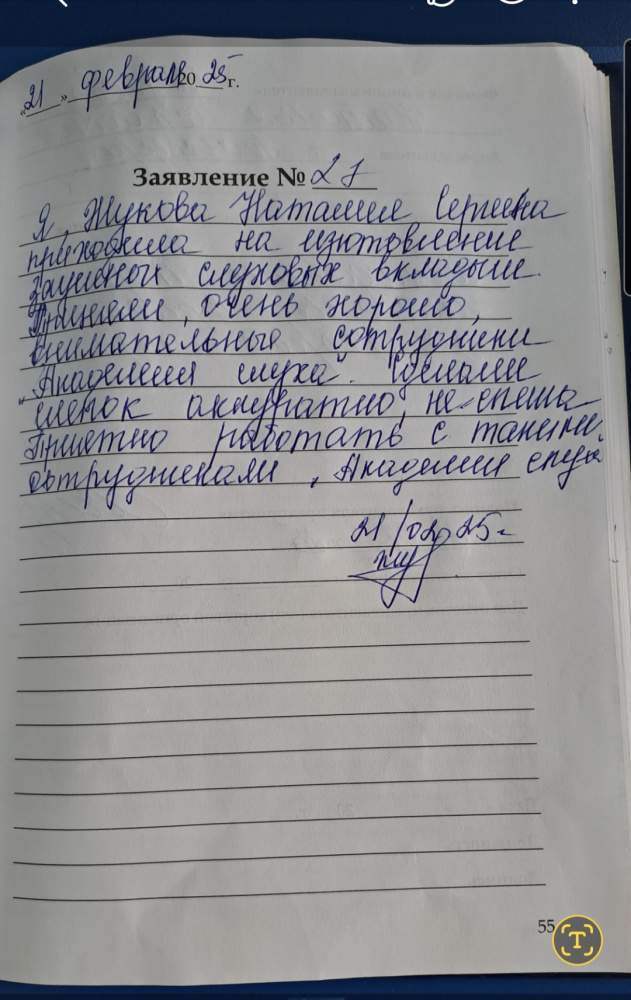 «21» февраля 2025 г.
Заявление № 27
Я, Жукова Наталия Сергеевна
приходила на изготовление
слуховых вкладыше.
Приняли, очень хорошо,
внимательные сотрудники
"Академия слуха". Сделали
слепок аккуратно, не спеша
Приятно работать с такими
сотрудниками, Академия слуха
21/02 25 г.
55